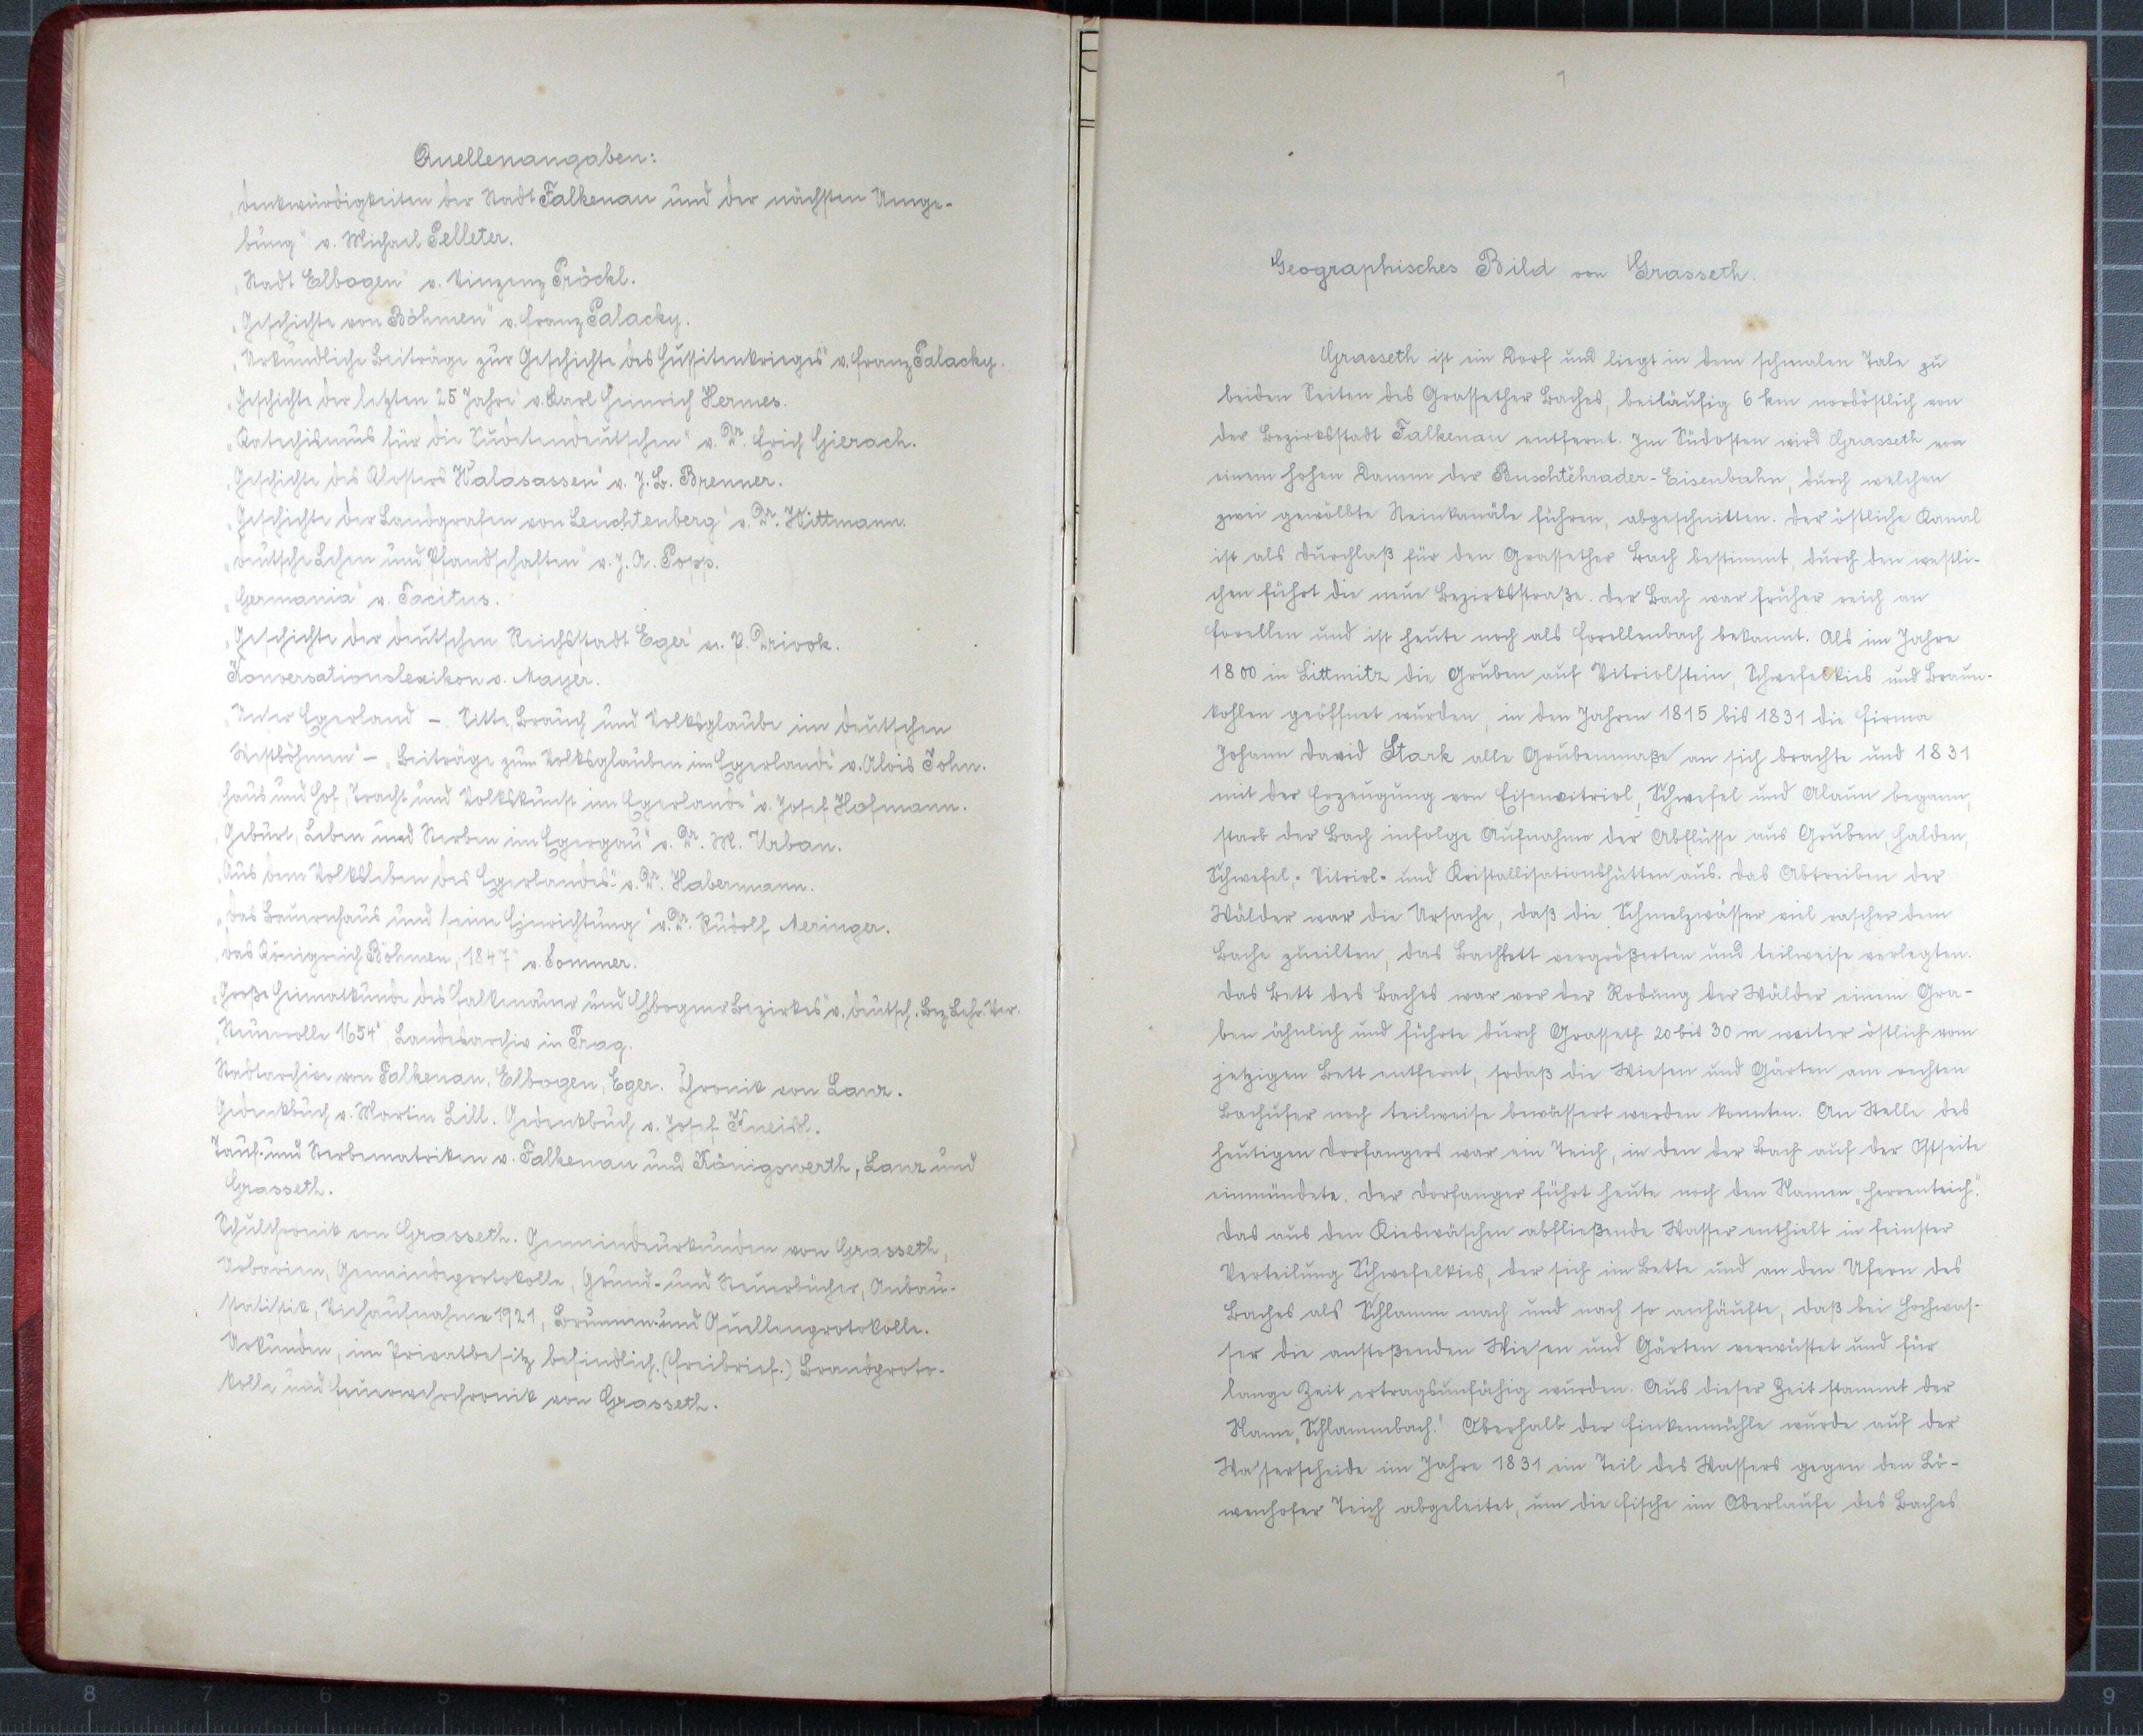 Quellenangaben:
„Denkwürdigkeiten der Stadt Falkenau und der nächsten Umge-
bung" v. Michael Pelleter.
„Stadt Elbogen" v. Vinzenz Pröckl.
„Geschichte von Böhmen" v. Franz Palacky.
„Urkundliche Beiträge zur Geschichte des Hussitenkrieges" v. Franz Palacky.
„Geschichte der letzten 25 Jahre" v. Karl Heinrich Hermes.
„Katechismus für die Sudetendeutschen" v. Dr. Erich Gierach.
„Geschichte des Klosters Waldsassen" v. J. B. Brenner.
„Geschichte der Landgrafen von Leuchtenberg" v. Dr. Wittmann.
„Deutsche Lehen und Pfandschaften" v. J. A. Popp.
„Germania" v. Tacitus.
„Geschichte der deutschen Reichsstadt Eger" v. P. Drivok.
Konversationslexikon v. Mayer.
„Unser Egerland – Sitte, Brauch und Volksglaube im deutschen
Westböhmen" – „Beiträge zum Volksglauben im Egerlande" v. Alois John.
„Haus und Hof, Tracht und Volkskunst im Egerlande" v. Josef Hofmann.
„Geburt, Leben und Sterben im Egergau" v. Dr. M. Urban.
„Aus dem Volksleben des Egerlandes" v. Dr. Habermann.
„Das Bauernhaus und seine Einrichtung" v. Dr. Rudolf Meringer.
„Das Königreich Böhmen, 1847" v. Sommer.
„Große Heimatkunde des Falkenauer und Elbogner Bezirkes" v. deutsch. Bez. Lehr. Ver.
„Steuerrolle 1654", Landesarchiv in Prag.
Stadtarchive von Falkenau, Elbogen, Eger. Chronik von Lanz.
Gedenkbuch v. Martin Lill. Gedenkbuch v. Josef Kneißl.
Tauf- und Sterbematriken v. Falkenau und Königswerth, Lanz und
Grasseth.
Schulchronik von Grasseth. Gemeindeurkunden von Grasseth,
Urbarien, Gemeindeprotokolle, Grund- und Steuerbücher, Anbau-
statistik, Viehaufnahme 1921, Brunnen- und Quellenprotokolle.
Urkunden, im Privatbesitz befindlich. (Freibrief.) Brandproto-
kolle und Feuerwehrchronik von Grasseth.
1
Geographisches Bild von Grasseth.
Grasseth ist ein Dorf und liegt in dem schmalen Tale zu
beiden Seiten des Grassether Baches, beiläufig 6 km nordöstlich von
der Bezirksstadt Falkenau entfernt. Im Südosten wird Grasseth von
einem hohen Damm der Buschtěhrader-Eisenbahn, durch welchen
zwei gewölbte Steinkanäle führen, abgeschnitten. Der östliche Kanal
ist als Durchlaß für den Grassether Bach bestimmt, durch den westli-
chen führt die neue Bezirksstraße. Der Bach war früher reich an
Forellen und ist heute noch als Forellenbach bekannt. Als im Jahre
1800 in Littmitz die Gruben auf Vitriolstein, Schwefelkies und Braun-
kohlen geöffnet wurden, in den Jahren 1815 bis 1831 die Firma
Johann David Stark alle Grubenmaße an sich brachte und 1831
mit der Erzeugung von Eisenvitriol, Schwefel und Alaun begann,
starb der Bach infolge Aufnahme der Abflüsse aus Gruben, Halden,
Schwefel-, Vitriol- und Kristallisationshütten aus. Das Abtreiben der
Wälder war die Ursache, daß die Schmelzwässer viel rascher dem
Bache zueilten, das Bachbett vergrößerten und teilweise verlegten.
Das Bett des Baches war vor der Rodung der Wälder einem Gra-
ben ähnlich und führte durch Grasseth 20 bis 30 m weiter östlich vom
jetzigen Bett entfernt, sodaß die Wiesen und Gärten am rechten
Bachufer noch teilweise bewässert werden konnten. An Stelle des
heutigen Dorfangers war ein Teich, in den der Bach auf der Ostseite
einmündete. Der Dorfanger führt heute noch den Namen „Herrenteich".
Das aus den Kieswäschen abfließende Wasser enthielt in feinster
Verteilung Schwefelkies, der sich im Bette und an den Ufern des
Baches als Schlamm nach und nach so anhäufte, daß bei Hochwas-
ser die anstoßenden Wiesen und Gärten verwüstet und für
lange Zeit ertragsunfähig wurden. Aus dieser Zeit stammt der
Name „Schlammbach". Oberhalb der Finkenmühle wurde auf der
Wasserscheide im Jahre 1831 ein Teil des Wassers gegen den Lö-
wenhofer Teich abgeleitet, um die Fische im Oberlaufe des Baches